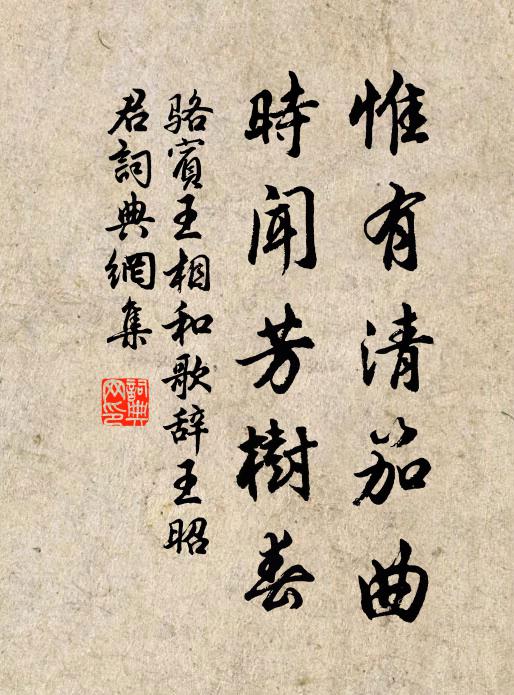 惟有清笳曲
時聞芳樹春
骆賓王相和歌辞王昭
君詞典網集
詞典
网印